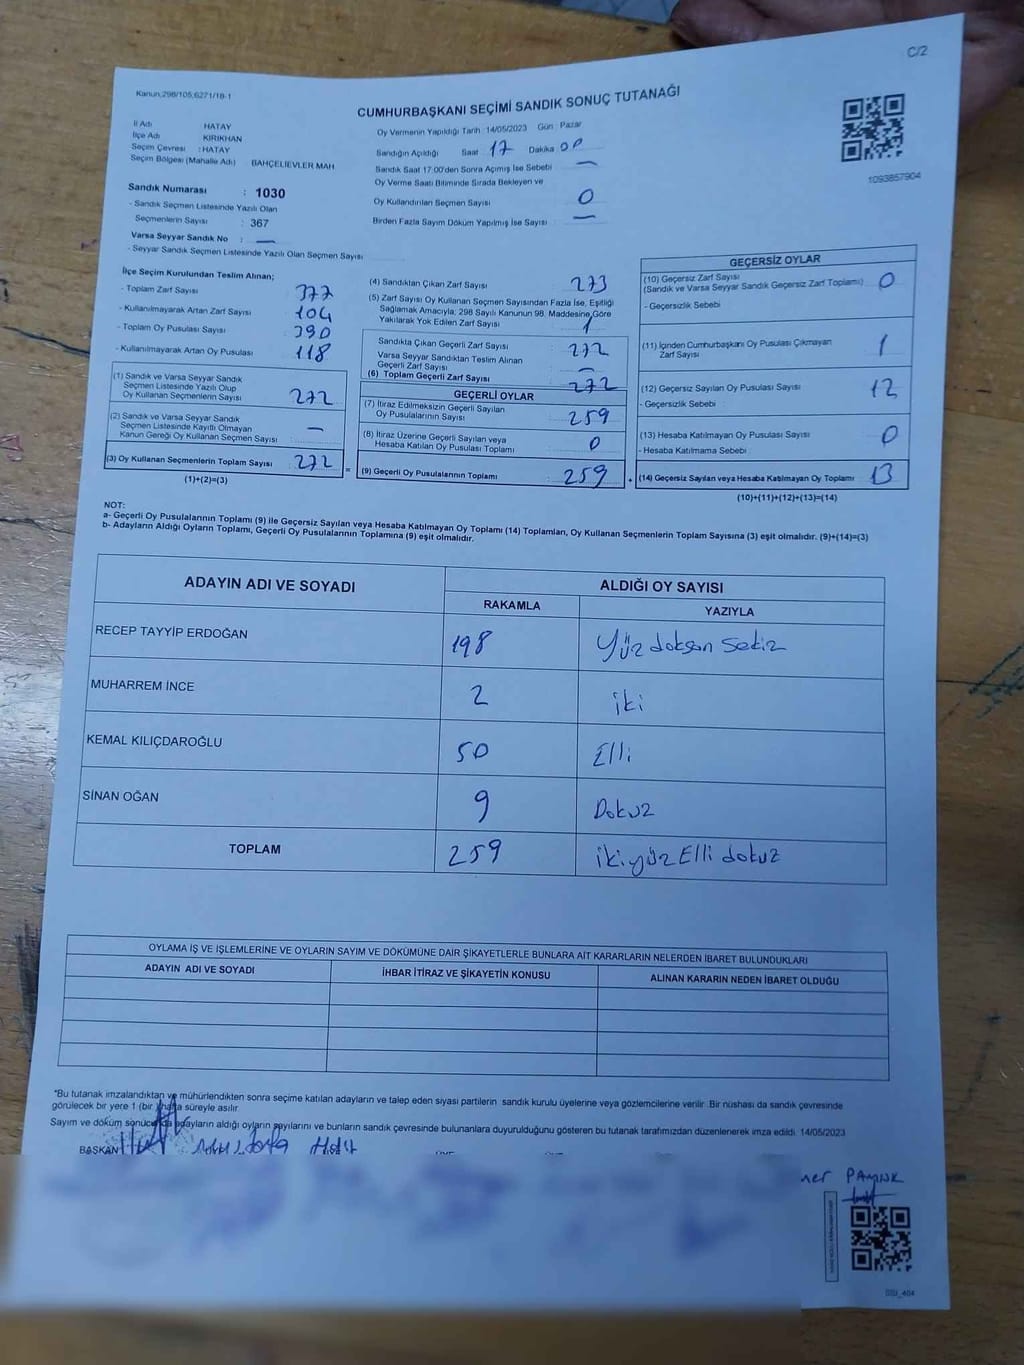 C/2
Kanun,298/105;6271/18-1
CUMHURBAŞKANI SEÇİMİ SANDIK SONUÇ TUTANAĞI
İl Adı HATAY
İlçe Adı KIRIKHAN
Seçim Çevresi : HATAY
Seçim Bölgesi (Mahalle Adı) : BAHÇELİEVLER MAH.
Sandık Numarası : 1030
- Sandık Seçmen Listesinde Yazılı Olan
Seçmenlerin Sayısı : 367
Varsa Seyyar Sandık No : —
- Seyyar Sandık Seçmen Listesinde Yazılı Olan Seçmen Sayısı
Oy Vermenin Yapıldığı Tarih :14/05/2023 Gün : Pazar
Sandığın Açıldığı Saat 17 Dakika 00
Sandık Saat 17:00'den Sonra Açımış İse Sebebi —
Oy Verme Saati Bitiminde Sırada Bekleyen ve
Oy Kullandırılan Seçmen Sayısı 0
Birden Fazla Sayım Döküm Yapılmış İse Sayısı —
1093857904
İlçe Seçim Kurulundan Teslim Alınan;
- Toplam Zarf Sayısı 377
- Kullanılmayarak Artan Zarf Sayısı 104
- Toplam Oy Pusulası Sayısı 390
- Kullanılmayarak Artan Oy Pusulası 118
(1) Sandık ve Varsa Seyyar Sandık
Seçmen Listesinde Yazılı Olup
Oy Kullanan Seçmenlerin Sayısı 272
(2) Sandık ve Varsa Seyyar Sandık
Seçmen Listesinde Kayıtlı Olmayan
Kanun Gereği Oy Kullanan Seçmen Sayısı —
(3) Oy Kullanan Seçmenlerin Toplam Sayısı 272 =
(1)+(2)=(3)
(4) Sandıktan Çıkan Zarf Sayısı 273
(5) Zarf Sayısı Oy Kullanan Seçmen Sayısından Fazla İse, Eşitliği
Sağlamak Amacıyla; 298 Sayılı Kanunun 98. Maddesine Göre
Yakılarak Yok Edilen Zarf Sayısı 1
Sandıkta Çıkan Geçerli Zarf Sayısı 272
Varsa Seyyar Sandıktan Teslim Alınan
Geçerli Zarf Sayısı —
(6) Toplam Geçerli Zarf Sayısı 272
GEÇERLİ OYLAR
(7) İtiraz Edilmeksizin Geçerli Sayılan
Oy Pusulalarının Sayısı 259
(8) İtiraz Üzerine Geçerli Sayılan veya
Hesaba Katılan Oy Pusulası Toplamı 0
(9) Geçerli Oy Pusulalarının Toplamı 259 +
GEÇERSİZ OYLAR
(10) Geçersiz Zarf Sayısı
(Sandık ve Varsa Seyyar Sandık Geçersiz Zarf Toplamı) 0
- Geçersizlik Sebebi
(11) İçinden Cumhurbaşkanı Oy Pusulası Çıkmayan
Zarf Sayısı 1
(12) Geçersiz Sayılan Oy Pusulası Sayısı 12
- Geçersizlik Sebebi
(13) Hesaba Katılmayan Oy Pusulası Sayısı 0
- Hesaba Katılmama Sebebi
(14) Geçersiz Sayılan veya Hesaba Katılmayan Oy Toplamı 13
(10)+(11)+(12)+(13)=(14)
NOT:
a- Geçerli Oy Pusulalarının Toplamı (9) ile Geçersiz Sayılan veya Hesaba Katılmayan Oy Toplamı (14) Toplamları, Oy Kullanan Seçmenlerin Toplam Sayısına (3) eşit olmalıdır. (9)+(14)=(3)
b- Adayların Aldığı Oyların Toplamı, Geçerli Oy Pusulalarının Toplamına (9) eşit olmalıdır.
ADAYIN ADI VE SOYADI ALDIĞI OY SAYISI
RAKAMLA YAZIYLA
RECEP TAYYİP ERDOĞAN 198 Yüz doksan sekiz
MUHARREM İNCE 2 iki
KEMAL KILIÇDAROĞLU 50 Elli
SİNAN OĞAN 9 Dokuz
TOPLAM 259 ikiyüz Elli dokuz
OYLAMA İŞ VE İŞLEMLERİNE VE OYLARIN SAYIM VE DÖKÜMÜNE DAİR ŞİKAYETLERLE BUNLARA AİT KARARLARIN NELERDEN İBARET BULUNDUKLARI
ADAYIN ADI VE SOYADI İHBAR İTİRAZ VE ŞİKAYETİN KONUSU ALINAN KARARIN NEDEN İBARET OLDUĞU
*Bu tutanak imzalandıktan ve mühürlendikten sonra seçime katılan adayların ve talep eden siyasi partilerin sandık kurulu üyelerine veya gözlemcilerine verilir. Bir nüshası da sandık çevresinde
görülecek bir yere 1 (bir) hafta süreyle asılır
Sayım ve döküm sonucunda adayların aldığı oyların sayılarını ve bunların sandık çevresinde bulunanlara duyurulduğunu gösteren bu tutanak tarafımızdan düzenlenerek imza edildi. 14/05/2023
BAŞKAN
ner PAMUK